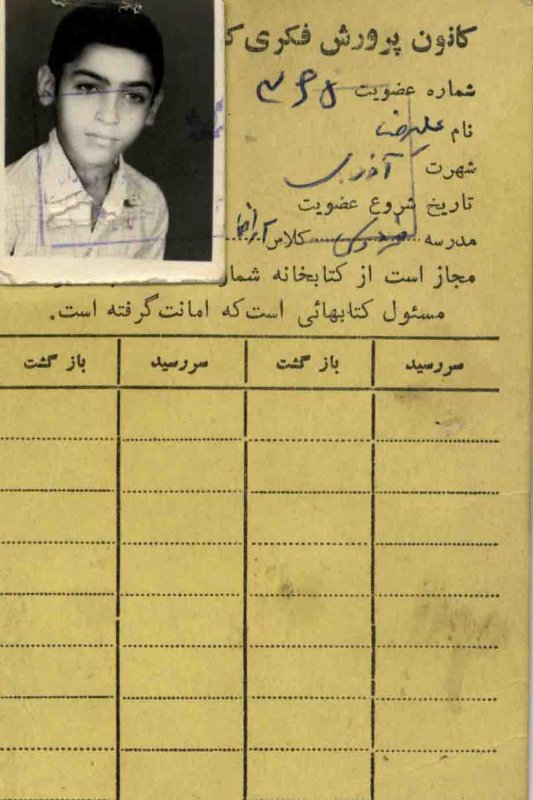 کانون پرورش فکری ک
شماره عضویت ۳۶۵
نام علیرضا
شهرت آذری
تاریخ شروع عضویت
مدرسه کلاس
مجاز است از کتابخانه شمار
مسئول کتابهائی است که امانت گرفته است.
سررسید باز گشت سررسید باز گشت